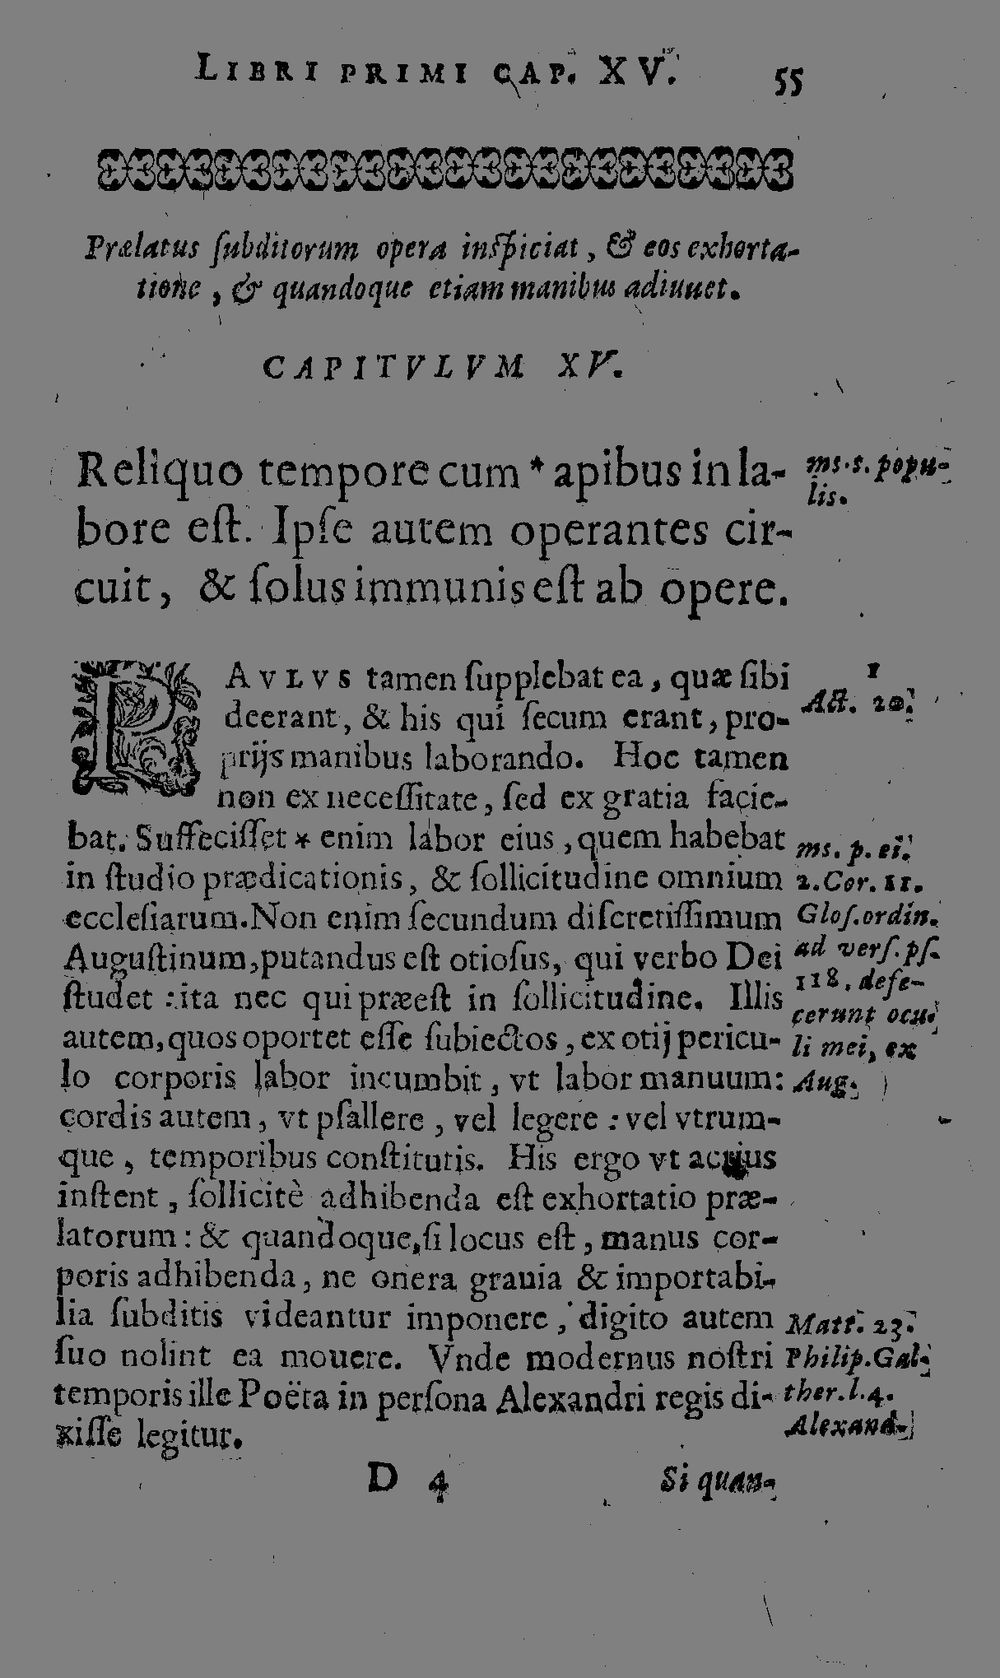 LIBRI PRIMI CAP. XV. 55
Prælatus ſubditorum opera inſpiciat, & eos exhorta-
tione, & quandoque etiam manibus adiuuet.
CAPITVLVM XV.
Reliquo tempore cum * apibus in la-
bore eſt. Ipſe autem operantes cir-
cuit, & ſolus immunis eſt ab opere.
ms. s. popu-
lis.
PAVLVS tamen ſupplebat ea, quæ ſibi
deerant, & his qui ſecum erant, pro-
prijs manibus laborando. Hoc tamen
non ex neceſſitate, ſed ex gratia facie-
bat. Suffeciſſet * enim labor eius, quem habebat
in ſtudio prædicationis, & ſollicitudine omnium
eccleſiarum. Non enim ſecundum diſcretiſſimum
Auguſtinum, putandus eſt otioſus, qui verbo Dei
ſtudet : ita nec qui præeſt in ſollicitudine. Illis
autem, quos oportet eſſe ſubiectos, ex otij pericu-
lo corporis labor incumbit, vt labor manuum:
cordis autem, vt pſallere, vel legere : vel vtrum-
que, temporibus conſtitutis. His ergo vt acrius
inſtent, ſollicitè adhibenda eſt exhortatio præ-
latorum: & quandoque, ſi locus eſt, manus cor-
poris adhibenda, ne onera grauia & importabi-
lia ſubditis videantur imponere, digito autem
ſuo nolint ea mouere. Vnde modernus noſtri
temporis ille Poëta in perſona Alexandri regis di-
xiſſe legitur.
1
Act. 20.
ms. p. ei.
2. Cor. 11.
Gloſ. ordin.
ad verſ. pſ.
118. defe-
cerunt ocu-
li mei, ex
Aug.
Matt. 23.
Philip. Gal-
ther. l. 4.
Alexand.
D 4 Si quan-